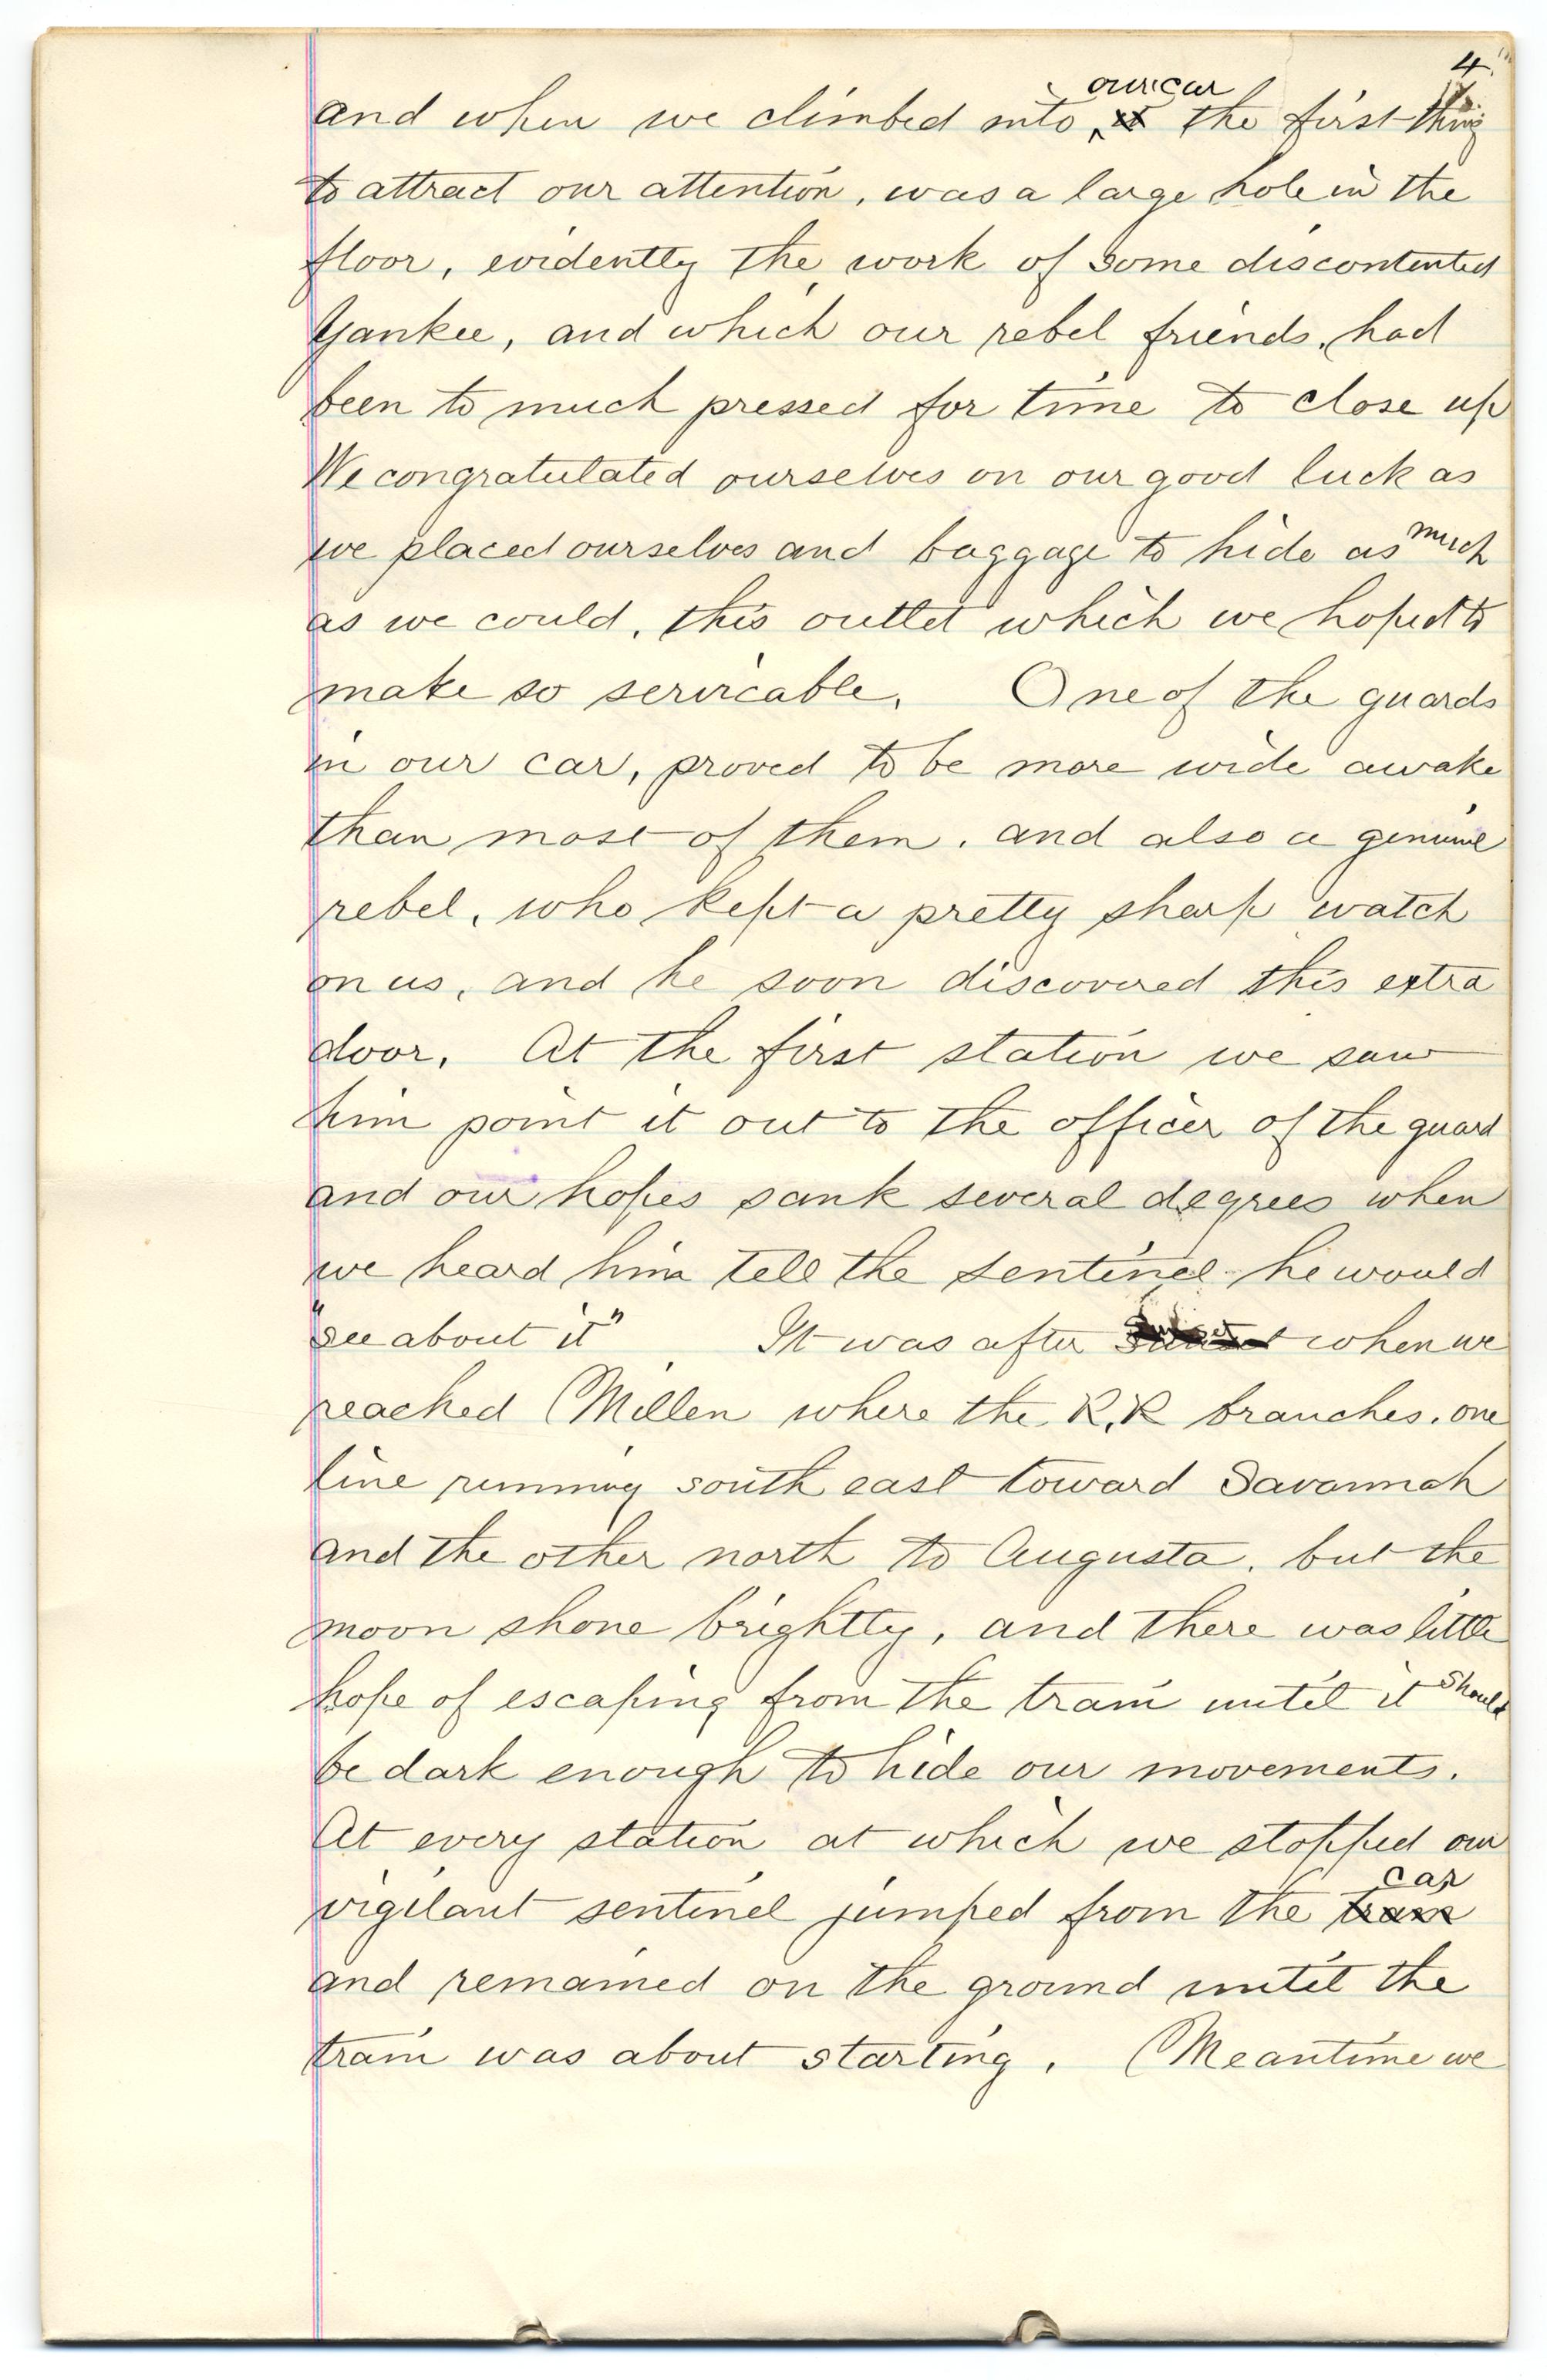 4.
and when we climbed into our car the first thing
to attract our attention, was a large hole in the
floor, evidently the work of some discontented
Yankee, and which our rebel friends, had
been to much pressed for time to close up
We congratulated ourselves on our good luck as
we placed ourselves and baggage to hide as much
as we could, this outlet which we hoped to
make so servicable. One of the guards
in our car, proved to be more wide awake
than most of them, and also a genuine
rebel, who kept a pretty sharp watch
on us, and he soon discovered this extra
door. At the first station we saw
him point it out to the officer of the guard
and our hopes sank several degrees when
we heard him tell the sentinel he would
"see about it" It was after sunset when we
reached Millen where the R.R branches, one
line running south east toward Savannah
and the other north to Augusta, but the
moon shone brightly, and there was little
hope of escaping from the train until it should
be dark enough to hide our movements.
At every station at which we stopped our
vigilant sentinel jumped from the train car
and remained on the ground until the
train was about starting. Meantime we